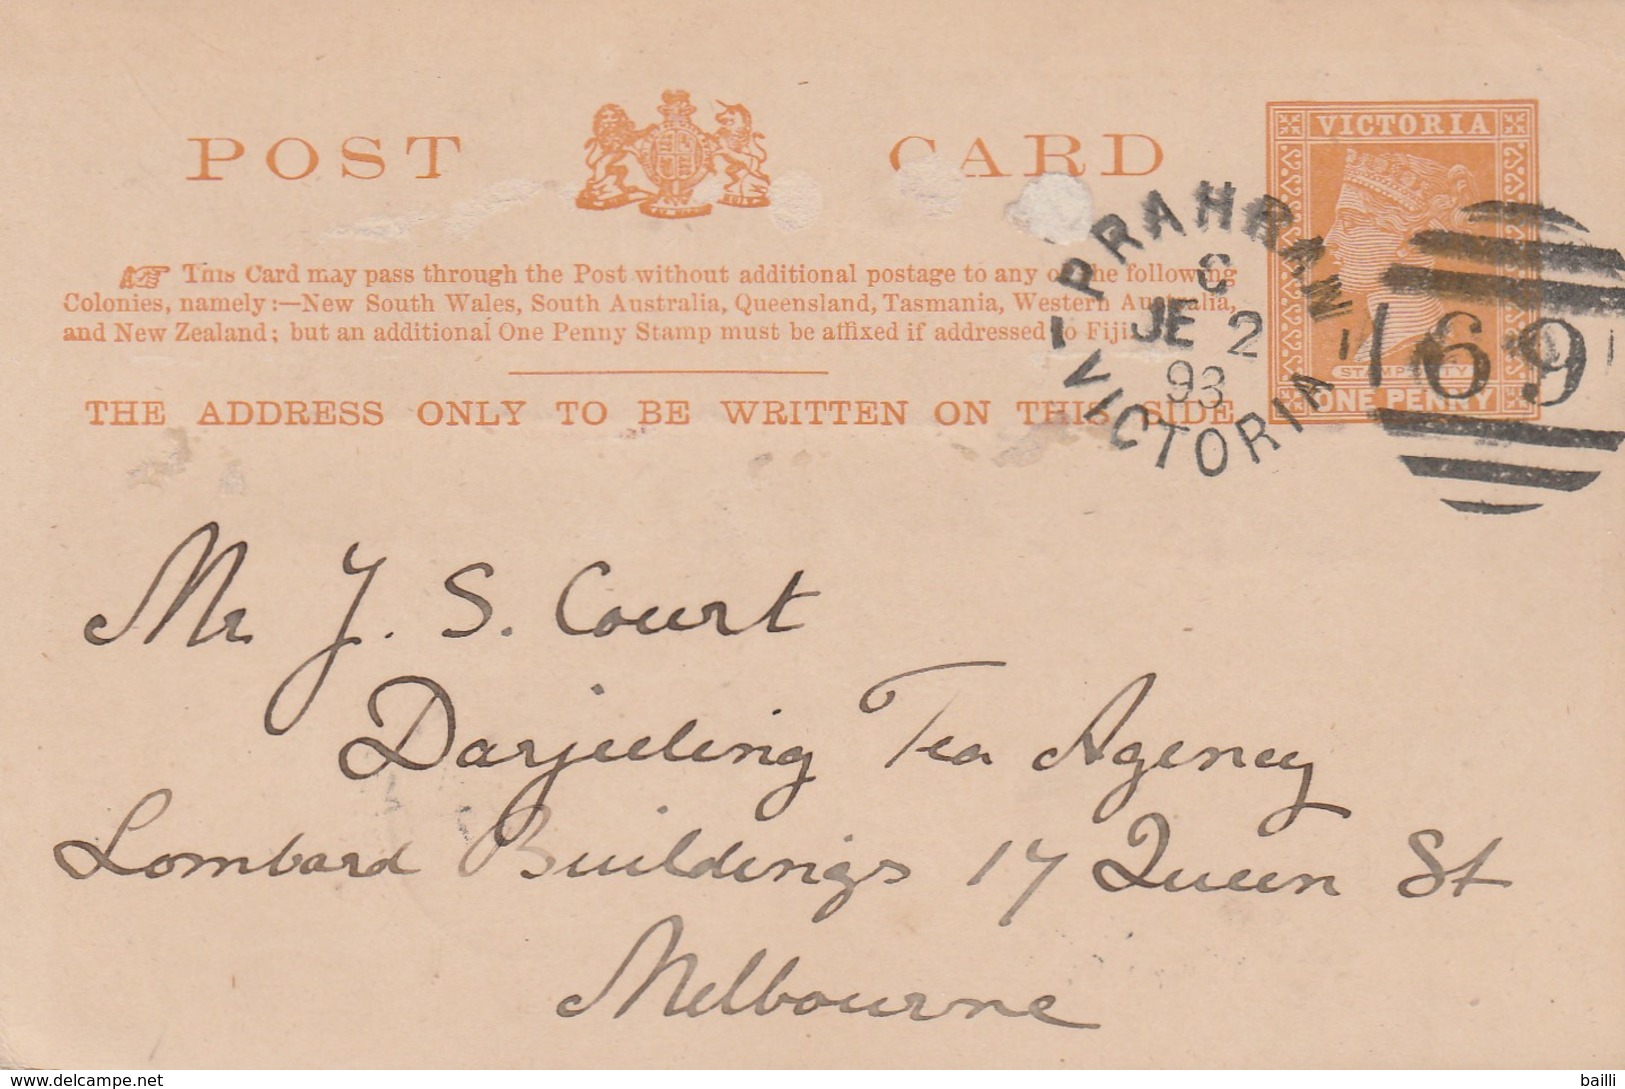 POST CARD
VICTORIA
This Card may pass through the Post without additional postage to any of the following
Colonies, namely:—New South Wales, South Australia, Queensland, Tasmania, Western Australia,
and New Zealand; but an additional One Penny Stamp must be affixed if addressed to Fiji
THE ADDRESS ONLY TO BE WRITTEN ON THIS SIDE
STAMP DUTY
ONE PENNY
PRAHRAN
C
JE 2
93
VICTORIA
169
Mr J. S. Court
Darjeeling Tea Agency
Lombard Buildings 17 Queen St
Melbourne
www.delcampe.net
bailli